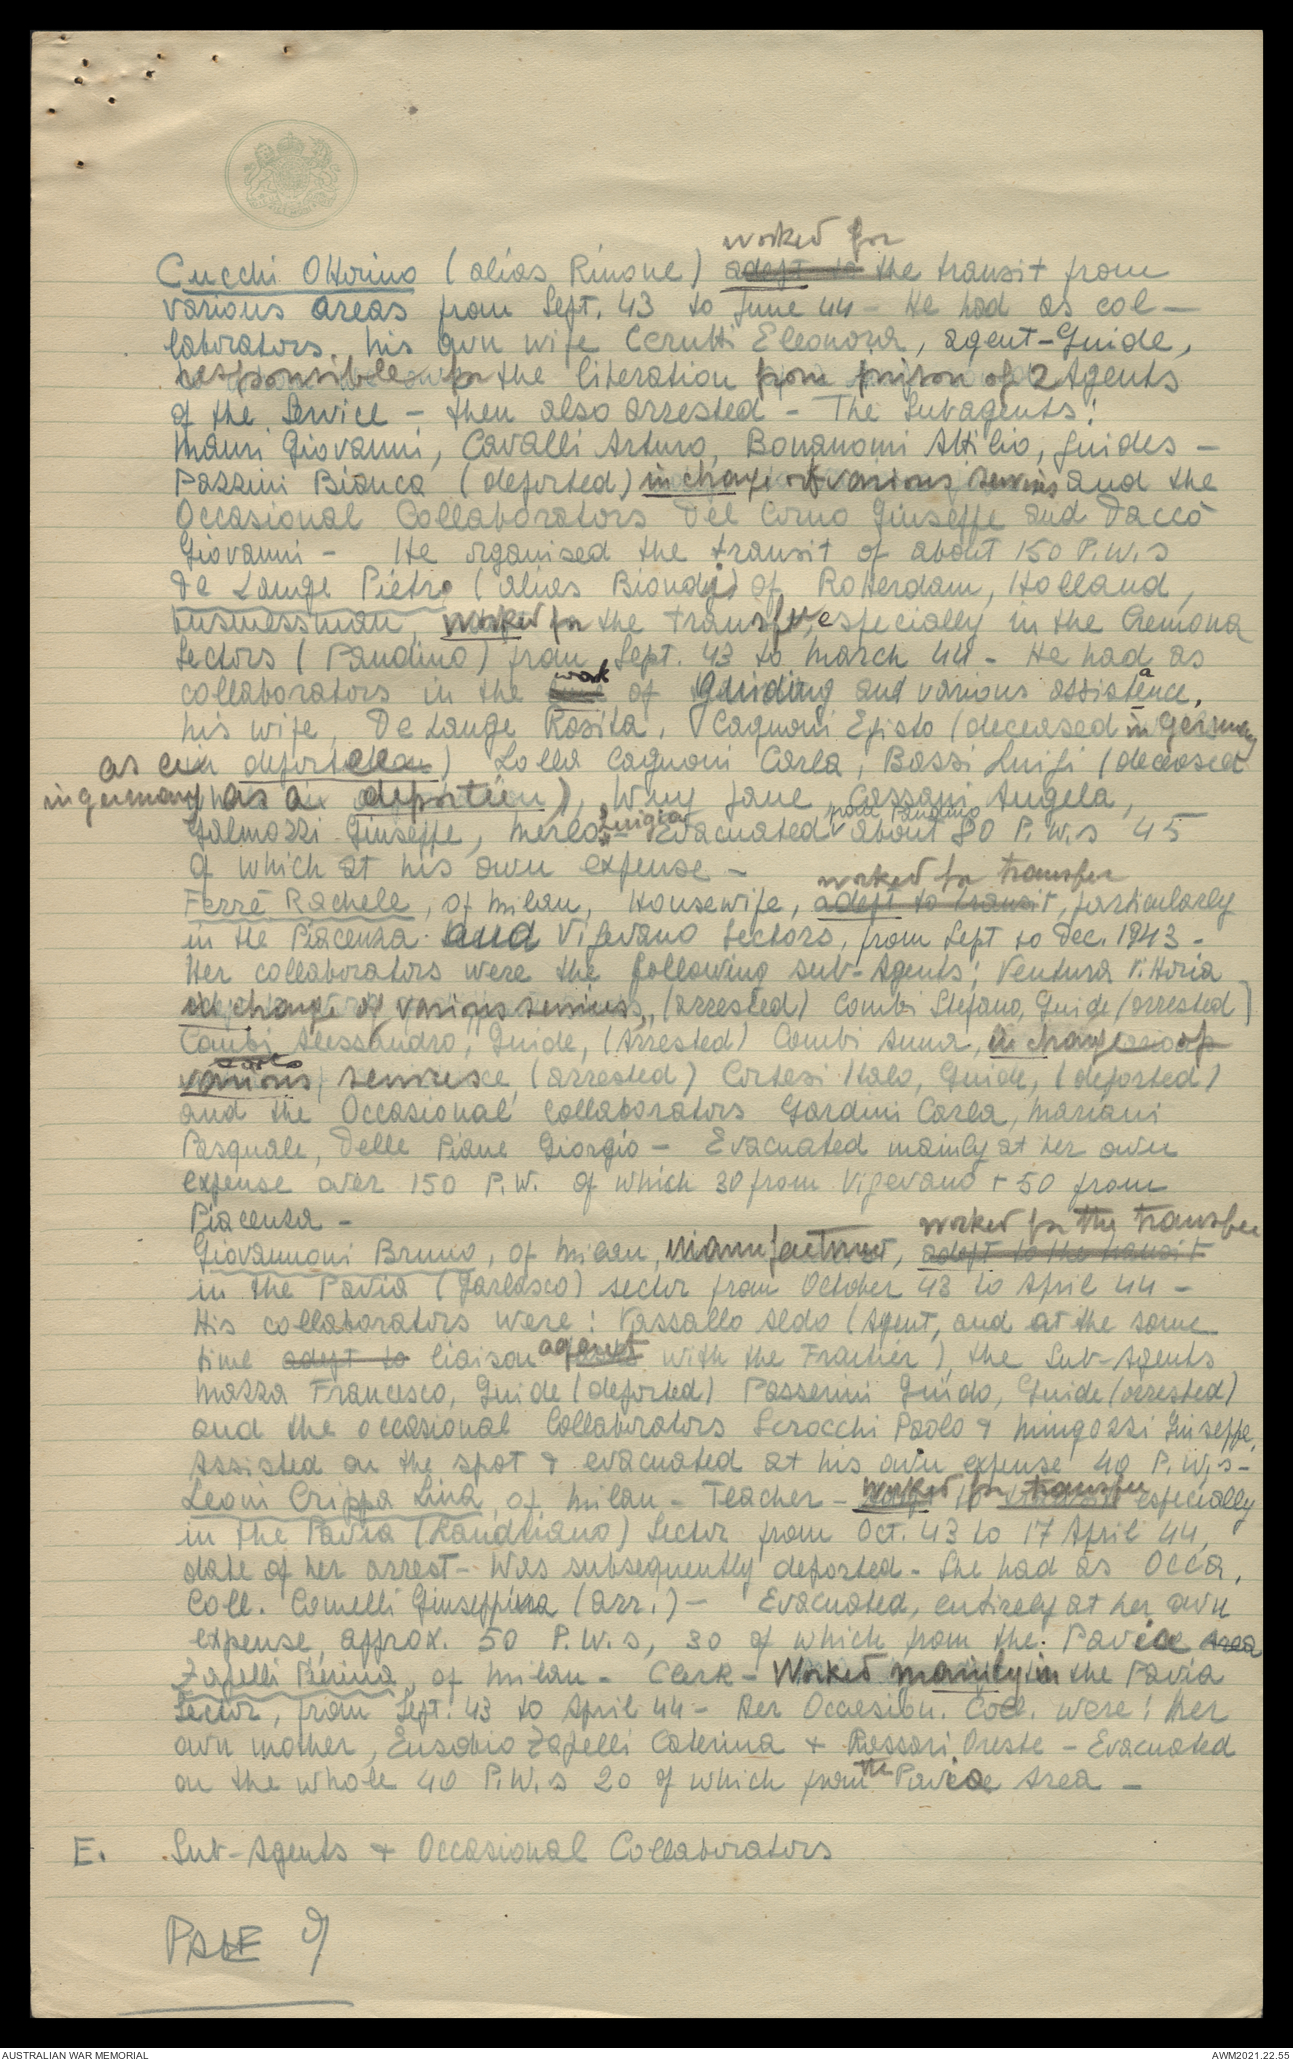 worked for
Cucchi Ottorino (alias Rinone) adept to the transit from
various areas from Sept. 43 to June 44 - He had as col-
laborators, his own wife Cerutti Eleonora, agent-Guide,
responsible for the liberation from prison of 2 Agents
of the Service - then also arrested - The Subagents:
Mauri Giovanni, Cavalli Arturo, Bonanomi Attilio, guides -
Pazzini Bianca (deported) in charge of various services and the
Occasional Collaborators Del Corno Giuseppe and Daccò
Giovanni - He organised the transit of about 150 P.W.s
De Lange Pietro (alias Biondi) of Rotterdam, Holland,
businessman, worked for the transfer, especially in the Cremona
Sectors (Pandino) from Sept. 43 to March 44 - He had as
work
collaborators in the of guiding and various assistance,
his wife, De Lange Rosita, Cagnoni Egisto (deceased in Germany
as a deportee) Lolla Cagnoni Carla, Bassi Luigi (deceased
in Germany as a deportee), Wny Jane, Cassani Angela,
Luigia from Pandino
Galmozzi Giuseppe, Merlo - Evacuated about 80 P.W.s 45
of which at his own expense -
worked for transfer
Ferrè Rachele, of Milan, Housewife, adept to transit, particularly
in the Piacenza and Vigevano Sectors, from Sept to Dec. 1943 -
Her collaborators were the following sub-Agents: Ventura Vittoria
in charge of various services, (arrested) Combi Stefano, Guide (arrested)
Combi Alessandro, Guide, (Arrested) Combi Anna, in charge of
various services (arrested) Cortesi Italo, Guide, (deported)
and the Occasional Collaborators Gardini Carla, Mariani
Pasquale, Delle Piane Giorgio - Evacuated mainly at her own
expense over 150 P.W. of which 30 from Vigevano + 50 from
Piacenza -
worked for the transfer
Giovannoni Bruno, of Milan, manufacturer, adept to the transit
in the Pavia (Garlasco) sector from October 43 to April 44 -
His collaborators were: Vassallo Aldo (Agent, and at the same
agent
time adept to liaison with the Frontier), the Sub-Agents
Mazza Francesco, Guide (deported) Passerini Guido, Guide (arrested)
and the occasional Collaborators Scrocchi Paolo & Mingozzi Giuseppe.
Assisted on the spot & evacuated at his own expense 40 P.W.s -
Leoni Crippa Lina, of Milan - Teacher - worked for transfer especially
in the Pavia (Landriano) Sector from Oct. 43 to 17 April 44,
date of her arrest - Was subsequently deported - She had as Occa.
Coll. Comelli Giuseppina (arr.) - Evacuated, entirely at her own
expense, approx. 50 P.W.s, 30 of which from the Pavia Area
Zapelli Pierina, of Milan - Clerk - Worked mainly in the Pavia
Sector, from Sept. 43 to April 44 - Her Occasion. Coll. were: her
own mother, Eusebio Zapelli Caterina & Rossari Oreste - Evacuated
on the whole 40 P.W.s 20 of which from the Pavia Area -
E. Sub-Agents & Occasional Collaborators
PAGE 9
AUSTRALIAN WAR MEMORIAL
AWM2021.22.55